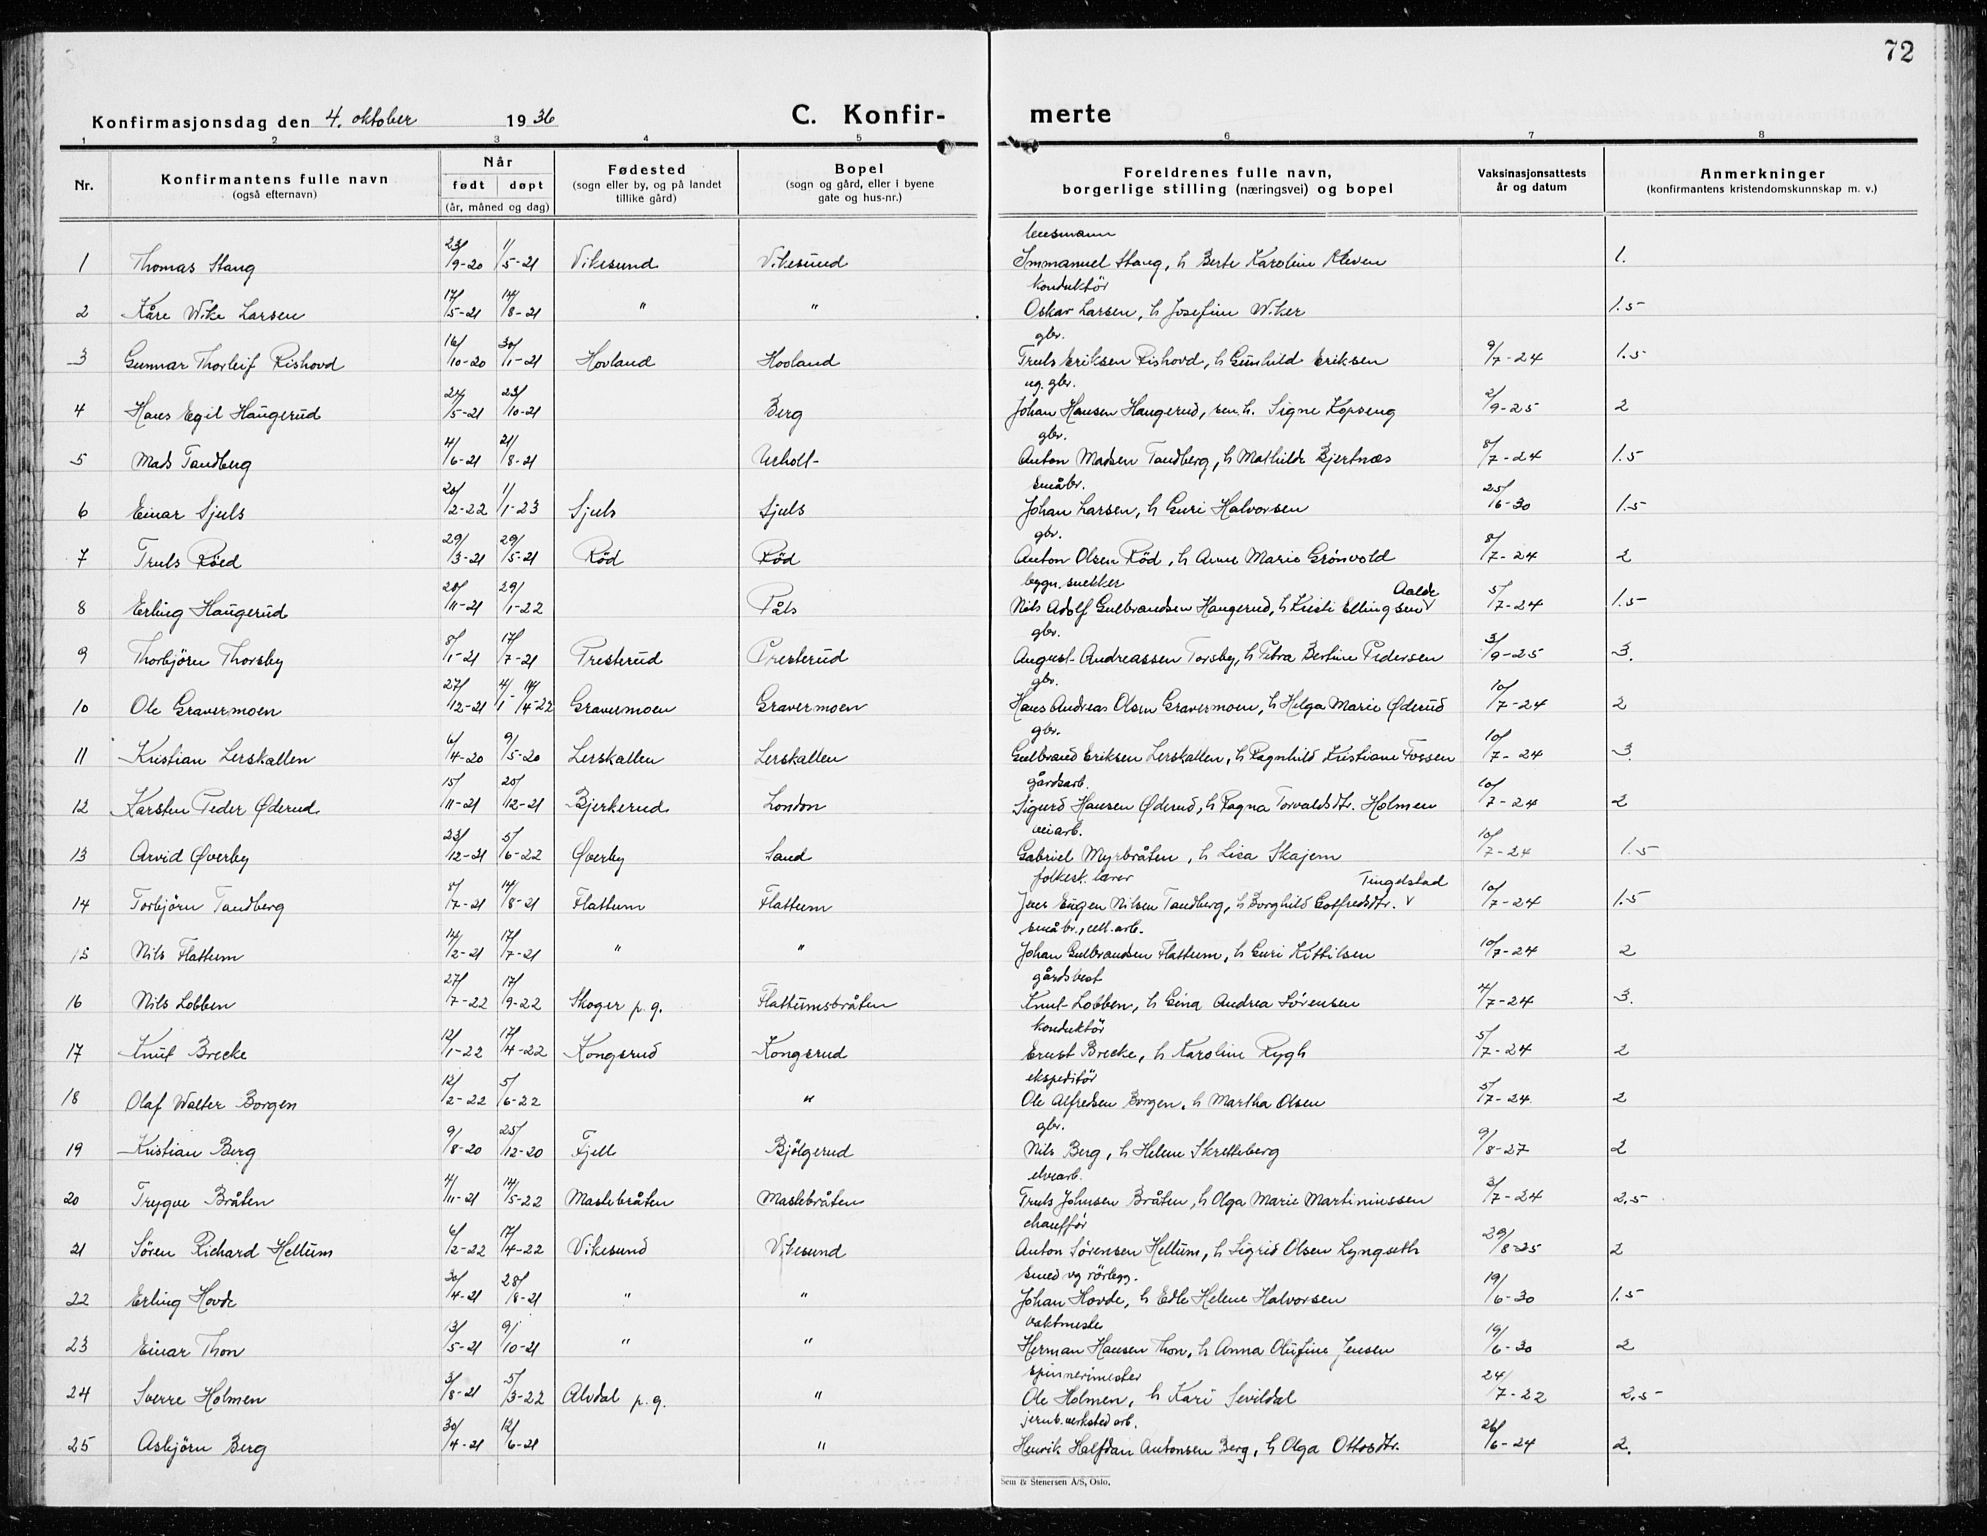 72
Konfirmasjonsdag den 4. oktober 1936 C. Konfir- merte
1 2 3 4 5 6 7 8
Nr. Konfirmantens fulle navn (også efternavn) Når født døpt (år, måned og dag) Fødested (sogn eller by, og på landet tillike gård) Bopel (sogn og gård, eller i byene gate og hus-nr.) Foreldrenes fulle navn, borgerlige stilling (næringsvei) og bopel Vaksinasjonsattests år og datum Anmerkninger (konfirmantens kristendomskunnskap m. v.)
lensmann
1 Thomas Stang 23/9-20 1/5-21 Vikesund Vikesund Immanuel Stang, h Berte Karoline Kleven 1.
konduktör
2 Kåre Wike Larsen 17/5-21 14/8-21 " " Oskar Larsen, h Josefine Wiker 1.5
gbr.
3 Gunnar Thorleif Rishovd 16/10-20 30/1-21 Hovland Hovland Truls Eriksen Rishovd, h Gunhild Eriksen 9/7-24 1.5
ug. gbr.
4 Hans Egil Haugerud 24/5-21 23/10-21 Berg Johan Hansen Haugerud, sen. h. Signe Kopseng 2/9-25 2
gbr.
5 Mads Tandberg 4/6-21 21/8-21 Anton Madsen Tandberg, h Mathilde Bjertnæs 8/7-24 1.5
småbr.
6 Einar Sjuls 20/2-22 1/1-23 Sjuls Sjuls Johan Larsen, h Guri Halvorsen 25/6-30 1.5
gbr.
7 Truls Röed 29/3-21 29/5-21 Röd Röd Anton Olsen Röd, h Anne Marie Grönvold 8/7-24 2
bygn. snekker Aalde
8 Erling Haugerud 20/11-21 29/1-22 Påls Nils Adolf Gulbrandsen Haugerud, h Kristi Ellingsen v 5/7-24 1.5
gbr.
9 Thorbjörn Thorsby 8/1-21 17/7-21 Presterud Presterud August Andreassen Torsby, h Petra Bertine Pedersen 3/9-25 3.
gbr.
10 Ole Gravermoen 27/12-21 4/1-14/4-22 Gravermoen Gravermoen Hans Andreas Olsen Gravermoen, h Helga Marie Øderud 10/7-24 2
gbr.
11 Kristian Lerskallen 6/4-20 9/5-20 Lerskallen Lerskallen Gulbrand Eriksen Lerskallen, h Ragnhild Kristiane Fossen 10/7-24 3.
gårdsarb.
12 Karsten Peder Øderud 15/11-21 20/12-21 Bjerkerud London Sigurd Hansen Øderud, h Ragna Torvaldsdtr. Holmen 10/7-24 2
veiarb.
13 Arvid Øverby 23/12-21 5/6-22 Øverby Sand Gabriel Myrbråten, h Lisa Skajem 10/7-24 1.5
folkesk. lærer Tingelstad
14 Torbjörn Tandberg 8/7-21 14/8-21 Flattum Flattum Jens Eugen Nilsen Tandberg, h Borghild Gotfredsdtr. v 10/7-24 1.5
småbr., cell. arb.
15 Nils Flattum 14/2-21 17/7-21 " " Johan Gulbrandsen Flattum, h Guri Kittilsen 10/7-24 2
gårdsbest
16 Nils Lobben 27/7-22 17/9-22 Skoger p.g. Flattumsbråten Knut Lobben, h Gina Andrea Sörensen 4/7-24 3.
konduktör
17 Knut Brecke 12/1-22 17/4-22 Kongsrud Kongsrud Ernst Brecke, h Karoline Rygh 5/7-24 2
ekspeditör
18 Olaf Walter Borgen 12/2-22 5/6-22 " Ole Alfredsen Borgen, h Martha Olsen 5/7-24 2
gbr.
19 Kristian Berg 9/8-20 25/12-20 Fjell Bjölgerud Nils Berg, h Helene Skretteberg 9/8-27 2
elvearb.
20 Trygve Bråten 4/11-21 14/5-22 Mastebråten Mastebråten Truls Johnsen Bråten, h Olga Marie Martiniussen 3/7-24 2.5
chauffør
21 Sören Richard Hellum 6/2-22 17/4-22 Vikesund Vikesund Anton Sörensen Hellum, h Sigrid Olsen Lyngseth 20/8-25 2
smed og rörlegg.
22 Erling Hovde 30/4-21 28/8-21 " " Johan Hovde, h Edle Helene Halvorsen 19/6-30 1.5
vaktmester
23 Einar Thon 13/5-21 9/10-21 " " Herman Hansen Thon, h Anna Olufine Jensen 19/6-30 2
spinnerimester
24 Sverre Holmen 3/8-21 5/3-22 Alvdal p.g. " Ole Holmen, h Kari Sevildal 24/7-22 2.5
jernb. verksted arb.
25 Asbjörn Berg 30/4-21 12/6-21 " Henrik Halfdan Antonsen Berg, h Olga Ottosdtr. 26/6-24 2.
Sem & Stenersen A/S, Oslo.